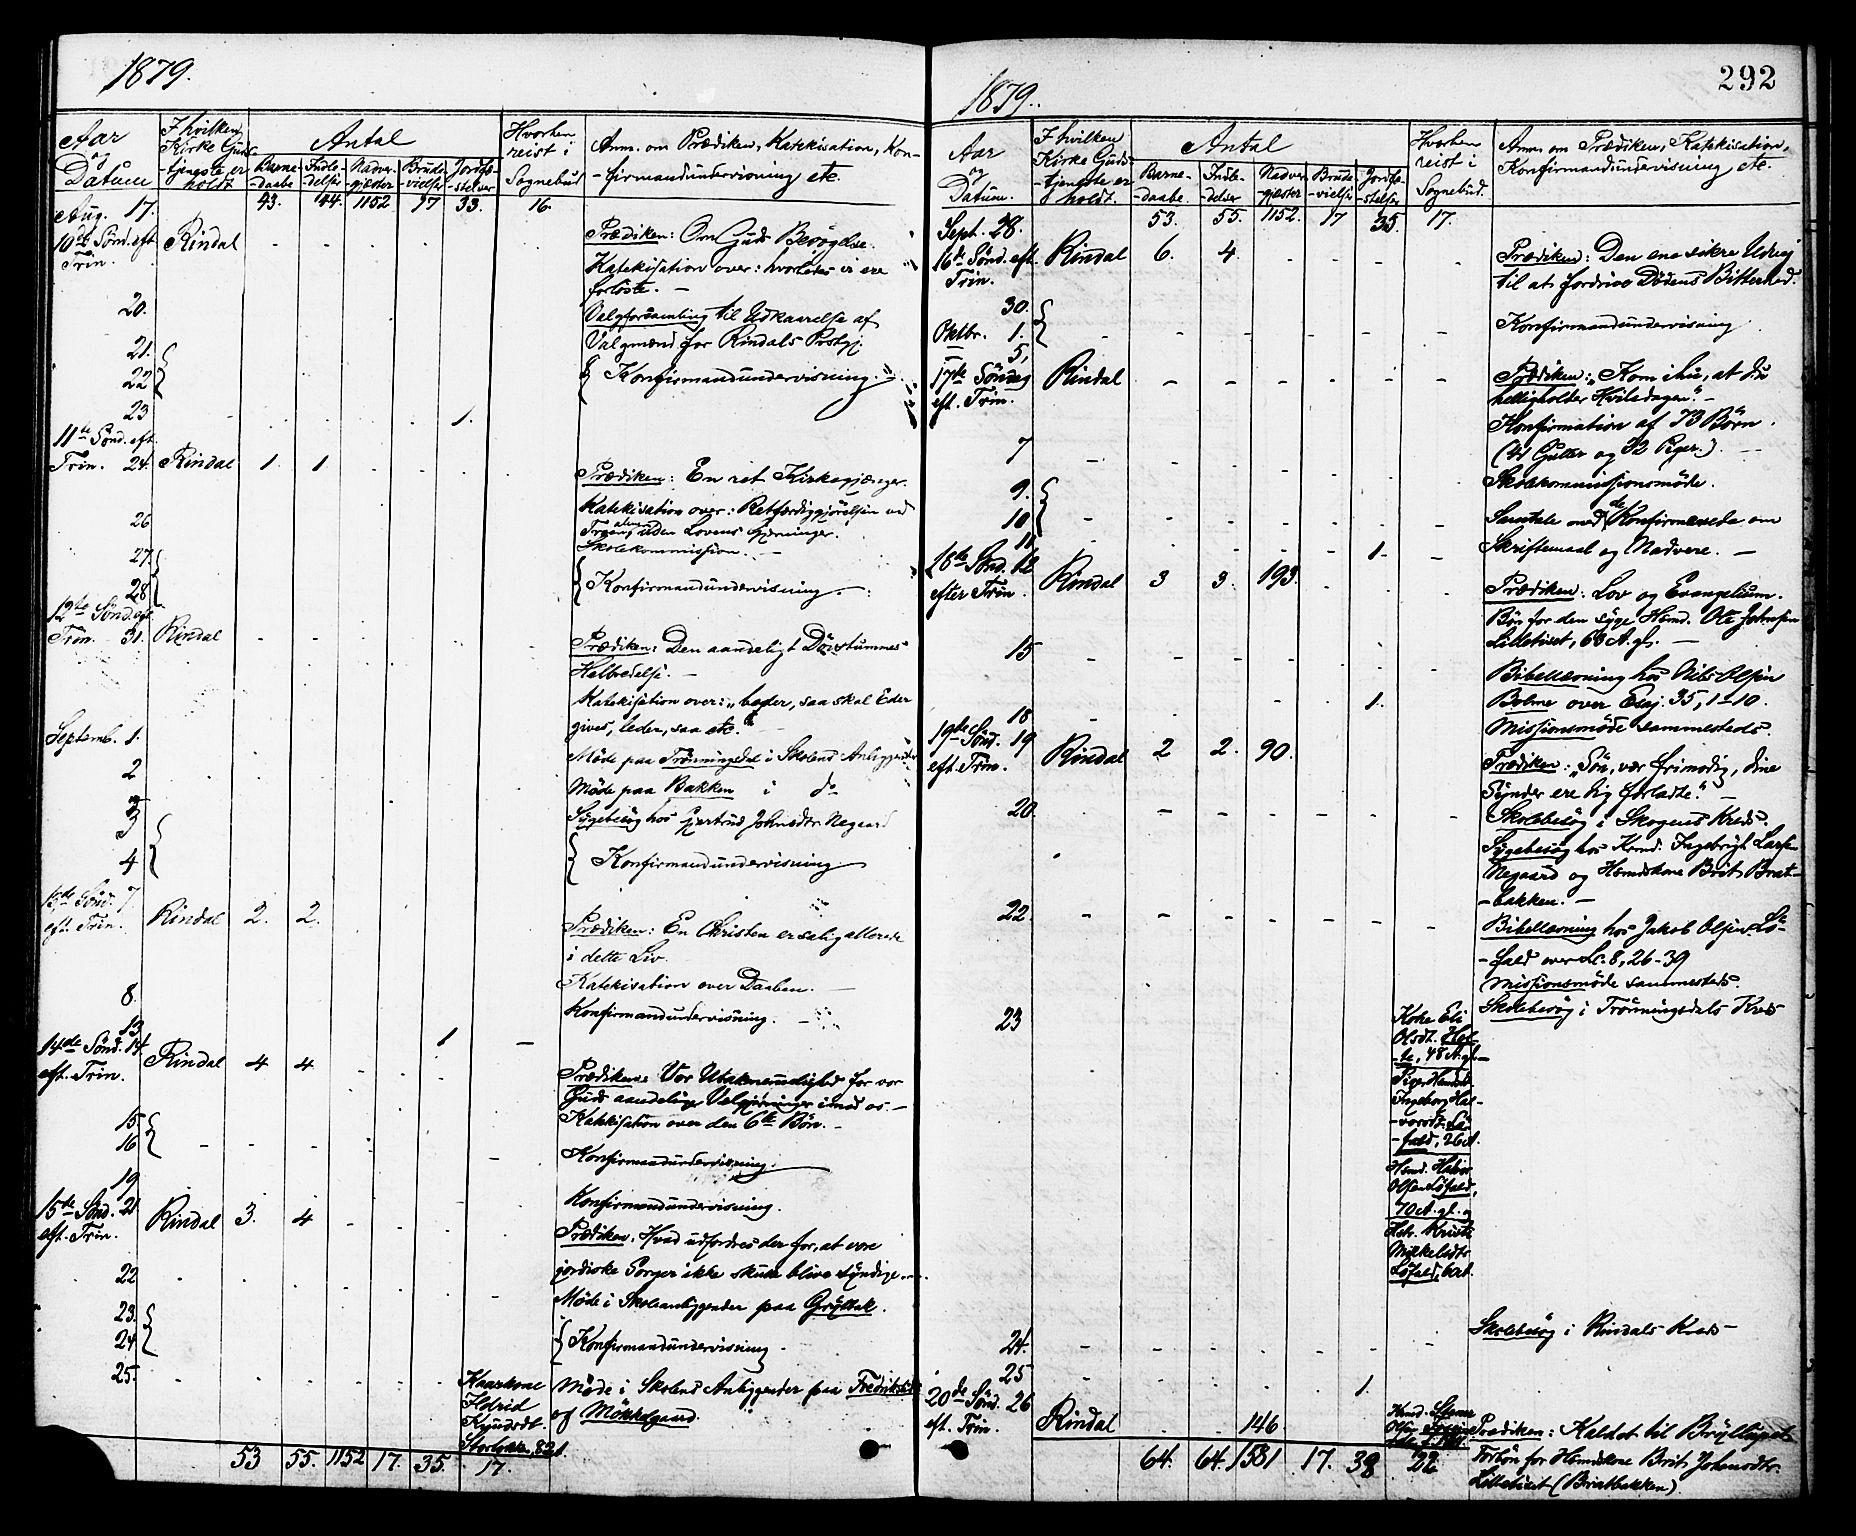 1879.
Aar og Datum
I hvilken Kirke Gudstjeneste er holdt
Antal
Barne-daabe
Indle-delser
Nadver-gjæster
Brude-vielser
Jordfæ-stelser
Hvorhen reist i Sognebud
Anm. om Prædiken, Katekisation, Kon-
-firmandundervisning etc.
43. 44. 1152 17 33. 16.
Aug. 17.
10de Sönd. eft. Trin. Rindal
Prædiken: Om Guds Besögelse.
Katekisation over: hvorledes vi ere
forlöste. —
20.
Valgforsamling til Udkaarelse af
Valgmænd for Rindals Prstgj.
21.
22
{ Konfirmandundervisning.
23 1.
11te Sönd. eft.
Trin. 24. Rindal 1 1
Prædiken: En ret Kirkegjænger.
Katekisation over: Retfærdiggjörelsen ved
Troen, alene, uden Lovens Gjerninger.
26 Skolekommission. —
27.
28
{ Konfirmandundervisning.
12te Sönd. eft.
Trin. 31. Rindal
Prædiken: Den aandeligt Döstummes
Helbredelse. —
Katekisation over: „beder, saa skal Eder
gives, leder, saa etc.
Septemb. 1.
Möde paa Trönningsdal i Skolens Anliggender
2 Möde paa Bakken i do
3 Sygebesög hos Gjertrud Johnsdtr Negaard
3
4
{ Konfirmandundervisning
13de Sönd. 7
eft. Trin. Rindal 2. 2.
Prædiken: En Christen er salig allerede
i dette Liv.
Katekisation over Daaben. —
8. Konfirmandundervisning. —
13 1
14de Sönd. 14
eft. Trin. Rindal 4 4
Prædiken: Vor Utaknemmelighed for vor
Guds aandelige Velgjerninger imod os. —
Katekisation over den 6te Bön. —
15.
16
Konfirmandundervisning.
19 Konfirmandundervisning.
15de Sönd. 21
eft. Trin. Rindal 3. 4
Prædiken: Hvad udfordres der for, at vore
jordiske Sorger ikke skulle blive syndige.
22 Möde i Skoleanliggender paa Gryttak.
23.
24
{ Konfirmandundervisning
25.
Kaarkone
Ildrid
Knudsdt
Storlökke, 82 A
Möde i Skolens Anliggender paa Fredriksli
og Mökkelgaard.
53 55. 1152 17. 35. 17.
292
1879.
Aar og Datum.
I hvilken Kirke Guds-tjeneste er holdt.
Antal
Barne-daabe
Indle-delser
Nadver-gjæster
Brude-vielser
Jordfæ-stelser
Hvorhen reist i Sognebud.
Anm. om Prædiken, Katekisation,
Konfirmandundervisning etc
53. 55. 1152. 17 35. 17.
Sept. 28.
16de Sönd. eft. Trin. Rindal 6. 4.
Prædiken: Den ene sikre Udvej
til at fordrive Dödens Bitterhed.
30.
Oktbr. 1.
Konfirmandundervisning
5,
17de Söndag
eft. Trin. Rindal
Prædiken: „Kom ihu, at du
helligholder Hviledagen“. —
Konfirmation af 73 Börn.
(41 Gutter og 32 Piger.) —
7 Skolekommissionsmöde.
9.
10
Samtale med de Konfirmerede om
Skriftemaal og Nadvere. —
11 1.
18de Sönd. 12
efter Trin. Rindal 3 3. 193.
Prædiken: Lov og Evangelium.
Bön for den syge Hsmd. Ole Johnsen
Litletuset, 63 A. gl. —
15
Bibellæsning hos Nils Olsen
Bolme over Esaj. 35, 1-10.
Missionsmöde sammesteds.
18 1.
19de Sönd. 19
eft. Trin. Rindal 2 2. 90.
Prædiken: „Sön, vær frimodig, dine
Synder ere dig forladte.“ —
20. Skolebesög i Skogens Kreds.
Sygebesög hos Krmd. Ingebrigt Larsen
Negaard og Hsmdskone Brit Brat-
-bakken. —
22 Bibellæsning hos Jakob Olsen Lö-
-fald over Lc. 8, 26-39
Missionsmöde sammesteds.
23 Skolebesög i Trönningsdals Kreds
Kone Eli
Olsdt. Hol-
-te, 48 A. gl. —
Pige Hsmds
Ingeborg Hal-
-vorsdt. Lö-
-fald, 26 A.
Hsmd. Halvor
Olsen Löfald,
70 A. gl. og
Hstr. Kristi
Mikkelsdtr
Löfald,
24. Skolebesög i Rindals Kreds —
25 1.
20de Sönd. 26
eft. Trin. Rindal 146
Prædiken: Kaldet til Bryllupet
Forbön for Hsmdskone Brit Johnsdtr.
Litletuset (Bratbakken)
64. 64. 1581 17. 38 22